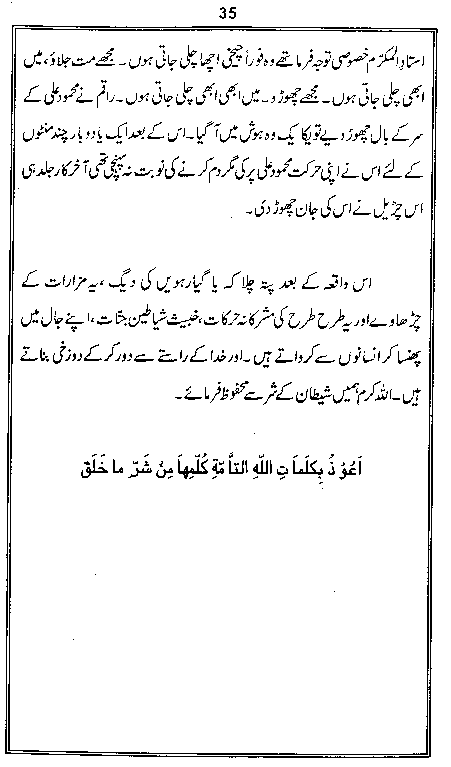 35
استاد المکرّم خصوصی توجہ فرما تھے وہ فوراً چیخی اچھا چلی جاتی ہوں۔ مجھے مت جلاؤ، میں
ابھی چلی جاتی ہوں۔ مجھے چھوڑ دو۔ میں ابھی ابھی چلی جاتی ہوں۔ راقم نے محمود علی کے
سر کے بال چھوڑ دیے تو یکایک وہ ہوش میں آ گیا۔ اس کے بعد ایک یا دو بار چند منٹوں
کے لئے اس نے اپنی حرکت محمود علی پر کی مگر دم کرنے کی نوبت نہ پہنچی تھی آخر کار جلد ہی
اس چڑیل نے اس کی جان چھوڑ دی۔
اس واقعہ کے بعد پتہ چلا کہ یا گیارہویں کی دیگ، یہ مزارات کے
چڑھاوے اور یہ طرح طرح کی مشرکانہ حرکات، خبیث شیاطین جنّات، اپنے جال میں
پھنسا کر انسانوں سے کرواتے ہیں۔ اور خدا کے راستے سے دور کر کے دوزخی بناتے
ہیں۔ اللہ کرم ہمیں شیطان کے شر سے محفوظ فرمائے۔
اَعُوْذُ بِكَلَمَاتِ اللّٰهِ التَّامَّةِ كُلِّهِاَ مِنْ شَرِّ ما خَلَقَ